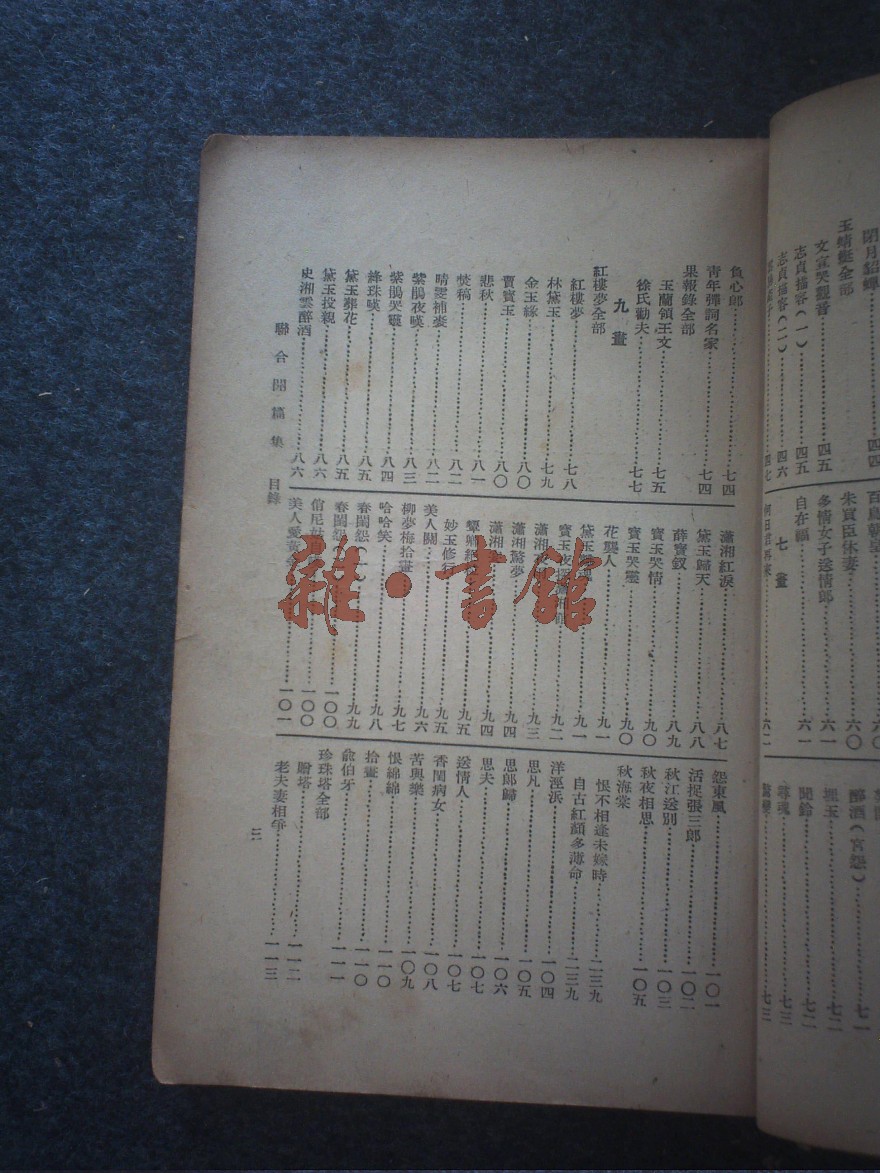 玉蜻蜓全部
文宣哭觀音……四五
志貞描容(一)……四五
志貞描容(二)……四六
朱買臣休妻……六〇
多情女子送情郎……六一
自在福……六一
七畫
醉酒(宮怨)……七一
埋玉……七二
聞鈴……七二
尋魂……七三
負心郎……七四
青年彈詞名家……七四
果報錄全部
玉蘭領王文……七五
徐氏勸夫……七七
九畫
紅樓夢全部
紅樓夢……七八
林黛玉……七九
金玉緣……八〇
賈寶玉……八〇
悲秋……八一
焚稿……八二
晴雯補裘……八二
紫鵑夜嘆……八三
紫鵑哭靈……八四
絳珠嘆……八五
黛玉葬花……八五
黛玉投親……八六
史湘雲醉酒……八六
瀟湘紅淚……八七
黛玉歸天……八八
薛寶釵……八九
寶玉哭情……九〇
寶玉哭靈……九〇
花襲人……九一
瀟湘驚夢……九四
妙玉修行……九五
美人關……九六
柳夢梅拾畫……九七
哈哈笑……九八
春閨怨(一)……九九
怨東風……一〇一
活捉張三郎……一〇二
秋江送別……一〇三
秋夜相思……一〇五
秋海棠
恨不相逢未嫁時……二三九
自古紅顏多薄命……二三九
洋涇浜……一〇四
思凡……一〇五
思郎歸……一〇六
思夫……一〇七
送情人……一〇七
香閨病女……一〇八
苦與樂……一〇九
恨綿綿……一一〇
拾畫……一一〇
俞伯牙……一一一
珍珠塔全部
贈塔……一一二
老夫妻相爭……一一三
聯合開篇集 目錄
三
雜·書館